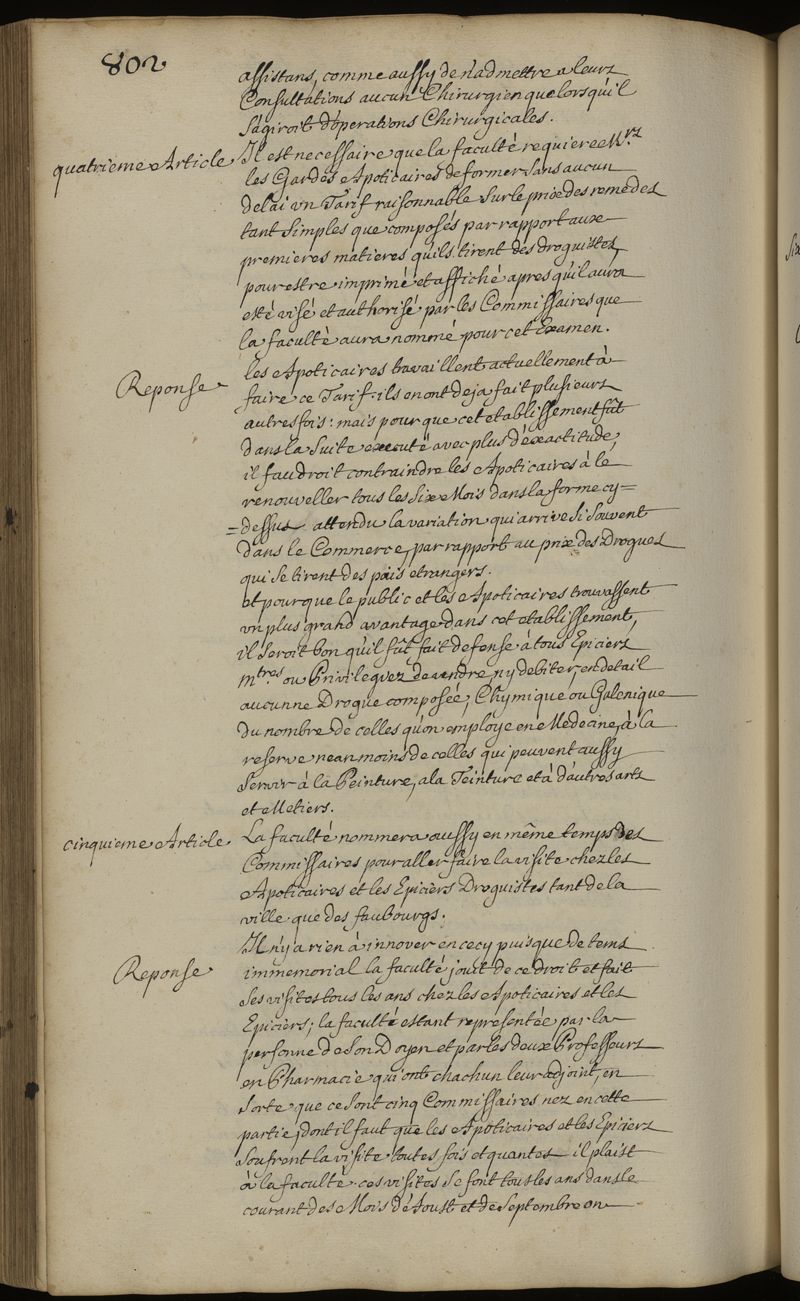 802
assistans, comme aussy de n'admettre a leurs
Consultations aucun Chirurgien que lorsqu'il
s'agiroit d'operations Chirurgicales.
quatrieme Article
Il est necessaire que la faculté requiere Mrs
les Gardes Apoticaires de former sans aucun
delai un Tarif raisonnable sur le prix des remedes
tant simples que composés par rapport aux
premieres matieres qu'ils tirent des droguistes,
pour estre imprimé et affiché apres qu'il aura
esté visé et authorisé par les Commissaires que
la faculté aura nommé pour cet Examen.
Reponse
les Apoticaires travaillent actuellement à
faire ce Tarif: ils en ont deja fait plusieurs
autres fois: mais pour que cet etablissement fût
dans la suite executé avec plus d'éxactitude,
il faudroit contraindre les Apoticaires à le
renouveller tous les six Mois dans la forme cy=
=dessus attendu la variation qui arrive si souvent
dans le Commerce, par rapport au prix des Drogues
qui se tirent des païs etrangers.
et pour que le public et les Apoticaires trouvassent
un plus grand avantage dans cet etablissement,
il seroit bon qu'il fût fait defense à tous Epiciers
mtres ou Privileguez de vendre, ny debiter, en detail
aucunne Drogue composée, Chymique ou Galenique
du nombre de celles qu'on employe en Medecine, à la
reserve neanmoins de celles qui peuvent aussy
servir à la Peinture, a la Teinture et à d'autres arts
et Metiers.
cinquieme Article
La faculté nommera aussy en même temps des
Commissaires pour aller faire la visite chez les
Apoticaires et les Epiciers Droguistes tant de la
ville que des faubourgs.
Reponse
Il n'y a rien à innover en cecy puisque de tems
immemorial la faculté jouit de ce droit et fait
ses visites tous les ans chez les Apoticaires et les
Epiciers; la faculté estant representée par la
personne de son Doyen et par les deux Professeurs
en Pharmacie qui ont chachun leur adjoint, en
sorte que ce sont cinq Commissaires nez en cette
partie, dont il faut que les Apoticaires et les Epiciers
soufrent la visite toutes fois et quantes il plaist
à la faculté. ces visites se font tous les ans dans le
courant des Mois d'Aoust et de Septembre on